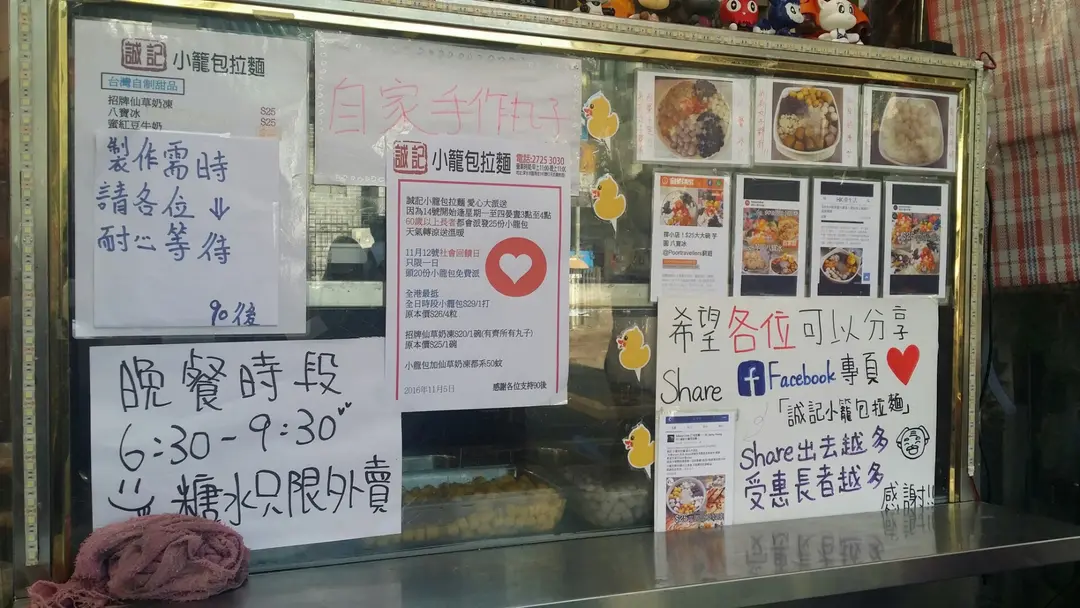 誠記 小籠包拉麵
台灣自制甜品
招牌仙草奶凍 $25
八寶冰 $25
蜜紅豆牛奶
製作需時
請各位
耐心等待
90後
自家手作丸子
誠記 小籠包拉麵 電話:2725 3030
誠記小籠包拉麵 愛心大派送
因為14號開始逢星期一至四晏晝3點至4點
60歲以上長者都會派發25份小籠包
天氣轉涼送溫暖
11月12號社會回饋日
只限一日
頭20份小籠包免費派
全港最抵
全日時段小籠包$29/1打
原本價$26/4粒
招牌仙草奶凍$20/1碗(有齊所有丸子)
原本價$25/1碗
小籠包加仙草奶凍都系50蚊
2016年11月5日 感謝各位支持90後
晚餐時段
6:30-9:30
糖水只限外賣
@Poortravellers窮遊
希望各位可以分享
Share f Facebook 專頁
「誠記小籠包拉麵」
Share出去越多
受惠長者越多
感謝!!